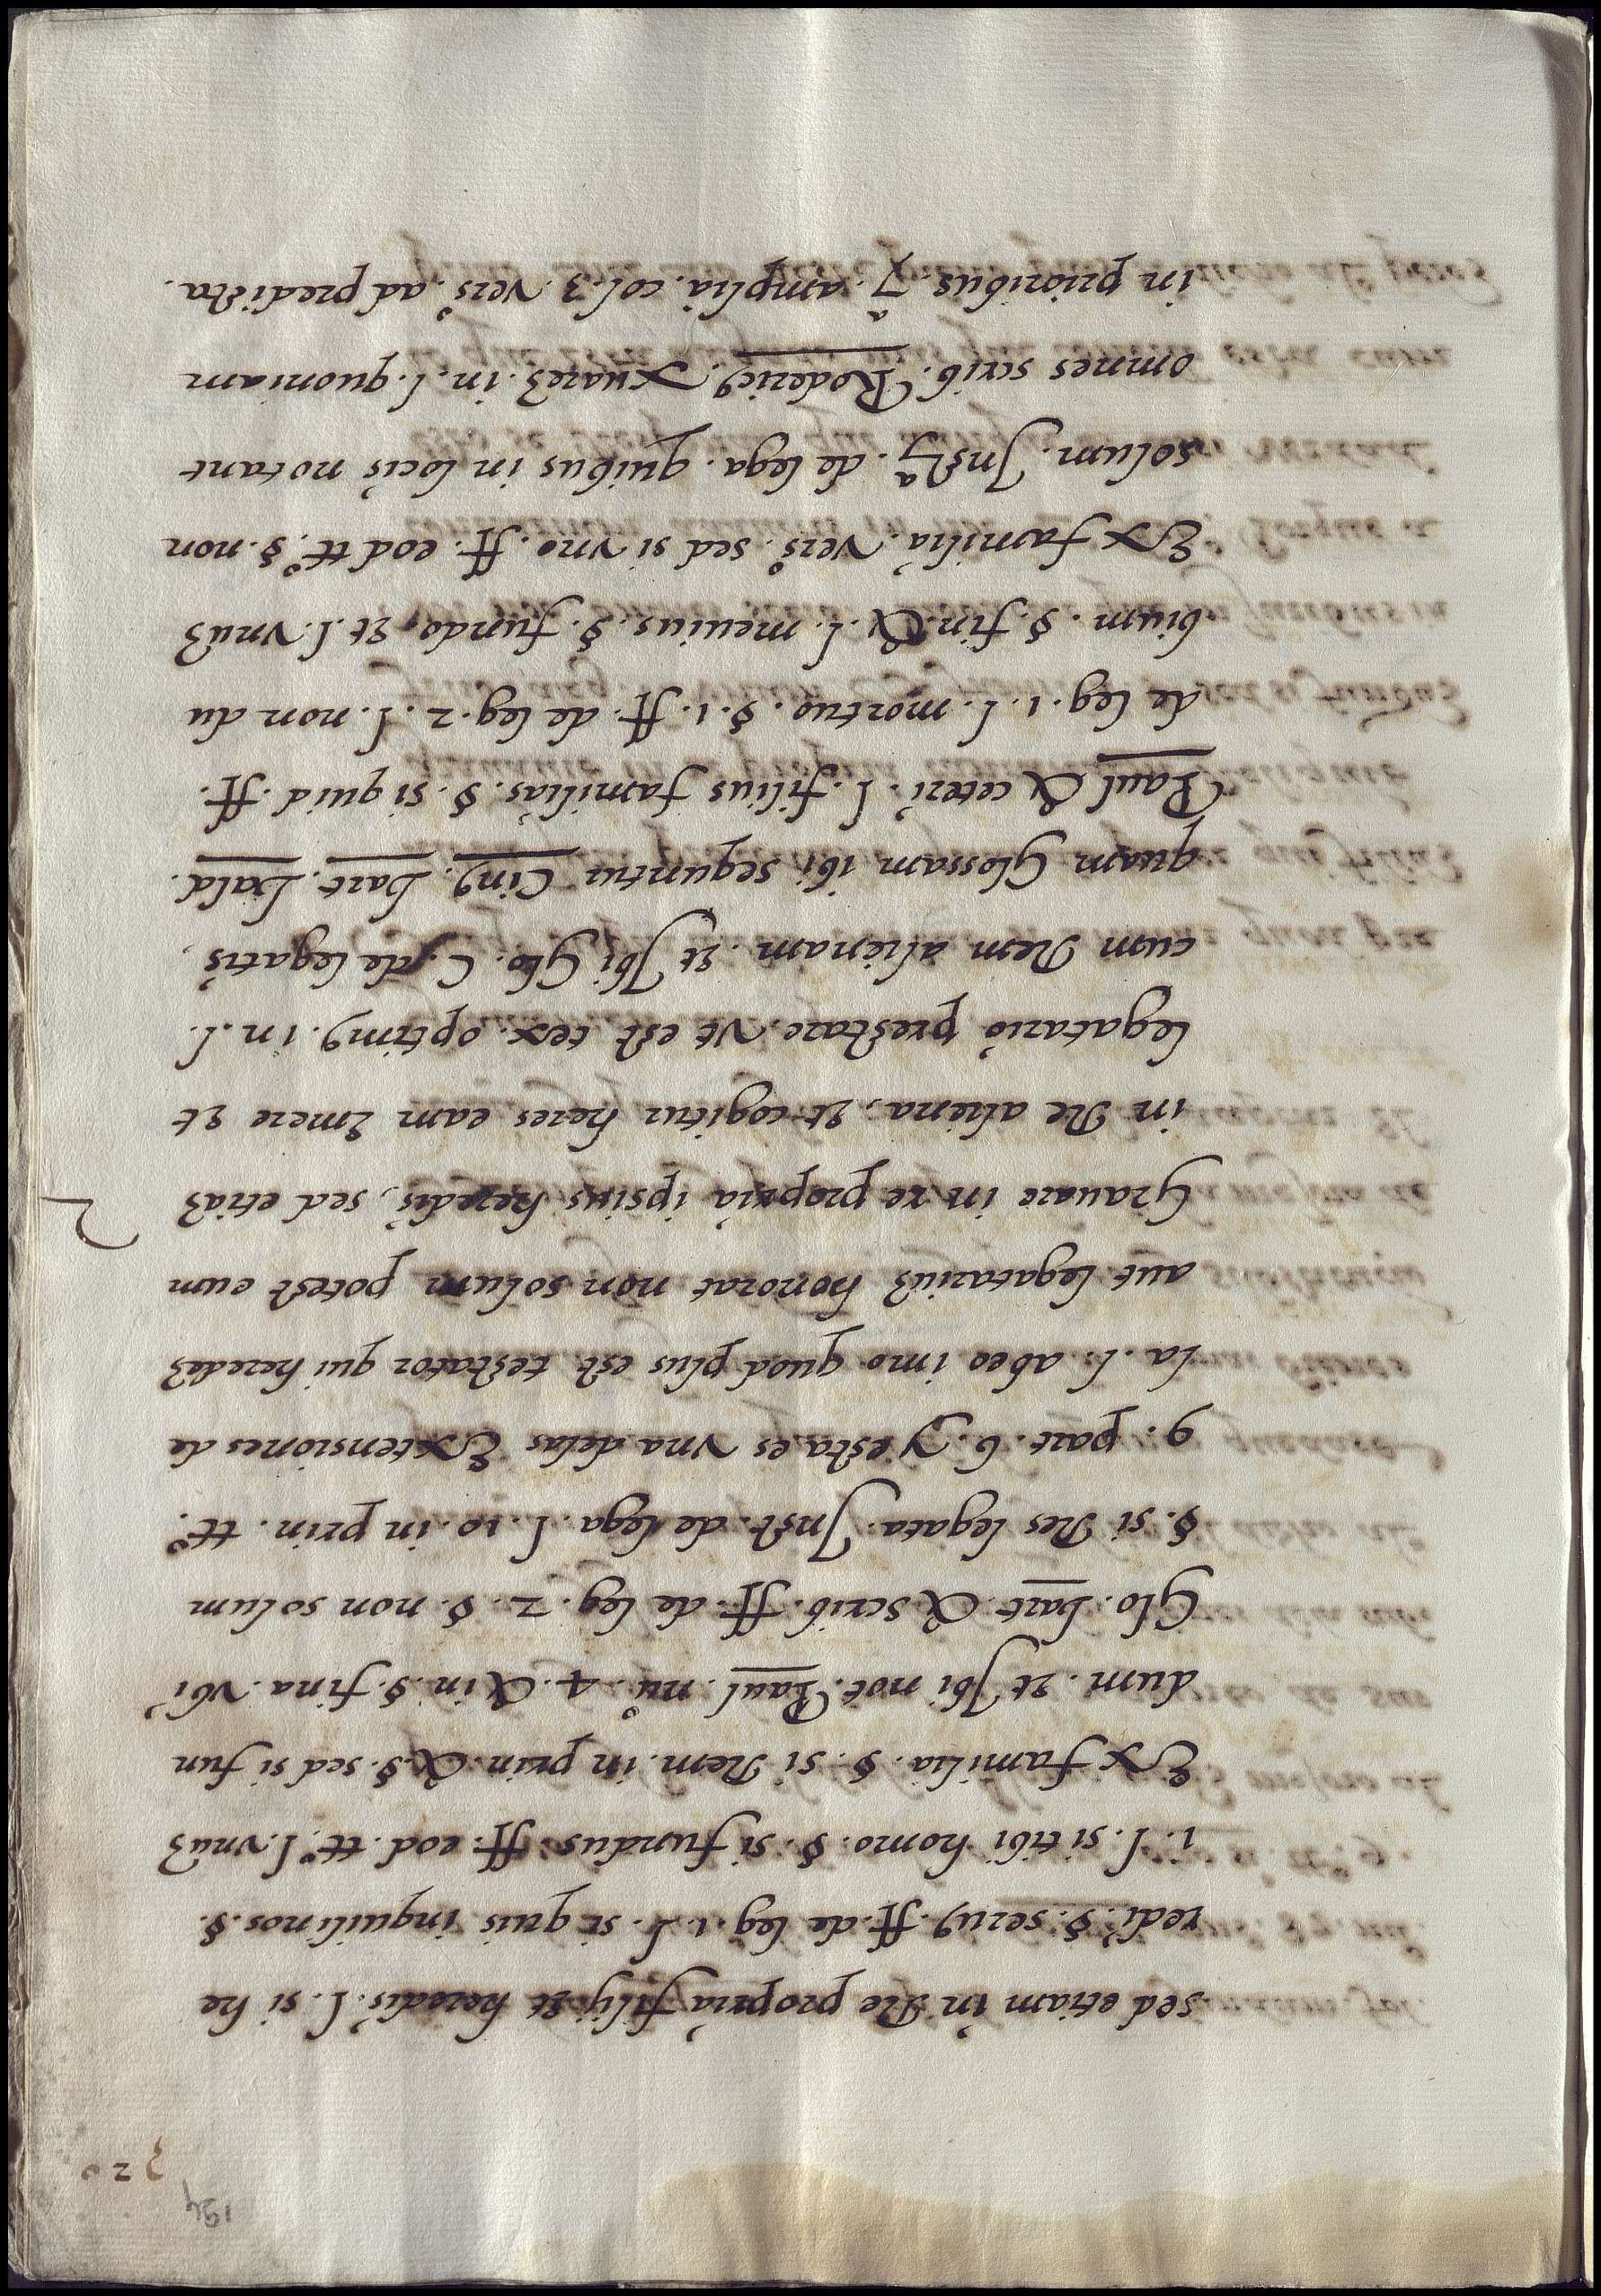 194
320
sed etiam in Re propria filij et heredis. l. si he
redi. §. seruꝯ. ff. de leg. 1. l. si quis inquilinos. §.
1. l. si tibi homo. §. si fundus. ff. eod. ttº. l. vnuʒ
Ex familia. §. si Rem. in prin. & §. sed si fun
dum. et Ibi not. Paul. nuº. 4. & in §. fina. vbi
Glo. bart. & scrib. ff. de leg. 2. §. non solum
§. si Res legata. Inst. de lega. l. 10. in prin. ttº.
9. part. 6. y esta es vna delas Extensiones de
la. l. abeo imo quod plus est testator qui heredeʒ
aut legatariuʒ honorat non solum potest eum
Grauare in re propria ipsius heredis, sed etiaʒ
in Re aliena, et cogitur heres eam Emere et
legatario prestare. vt est tex. optimꝯ. in. l.
cum Rem alienam. et Ibi Glo. C. de legatis,
quam Glossam ibi sequntur Cinꝯ. bart. bald.
Paul & ceteri. l. filius familias. §. si quid. ff.
de leg. 1. l. mortuo. §. 1. ff. de leg. 2. l. non du
bium. §. fin. & l. meuius. §. fundo, et l. vnuʒ
Ex familia. versº. sed si vno. ff. eod ttº. §. non
solum. Instª. de lega. quibus in locis notant
omnes scrib. Rodericꝯ. Xuareʒ. in. l. quoniam
in prioribus. 7ª. amplia. col. 3. versº. ad predicta.